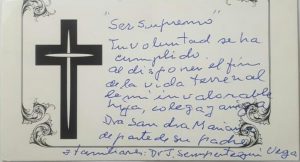 "Ser Supremo"
Tu voluntad se ha
cumplido
al disponer el fin
de la vida terrenal
de mi invalorable
hija, colega y amiga
Dra Sandra Mariane
de parte de su padre
y familiares: Dr J. Sempertegui Vega